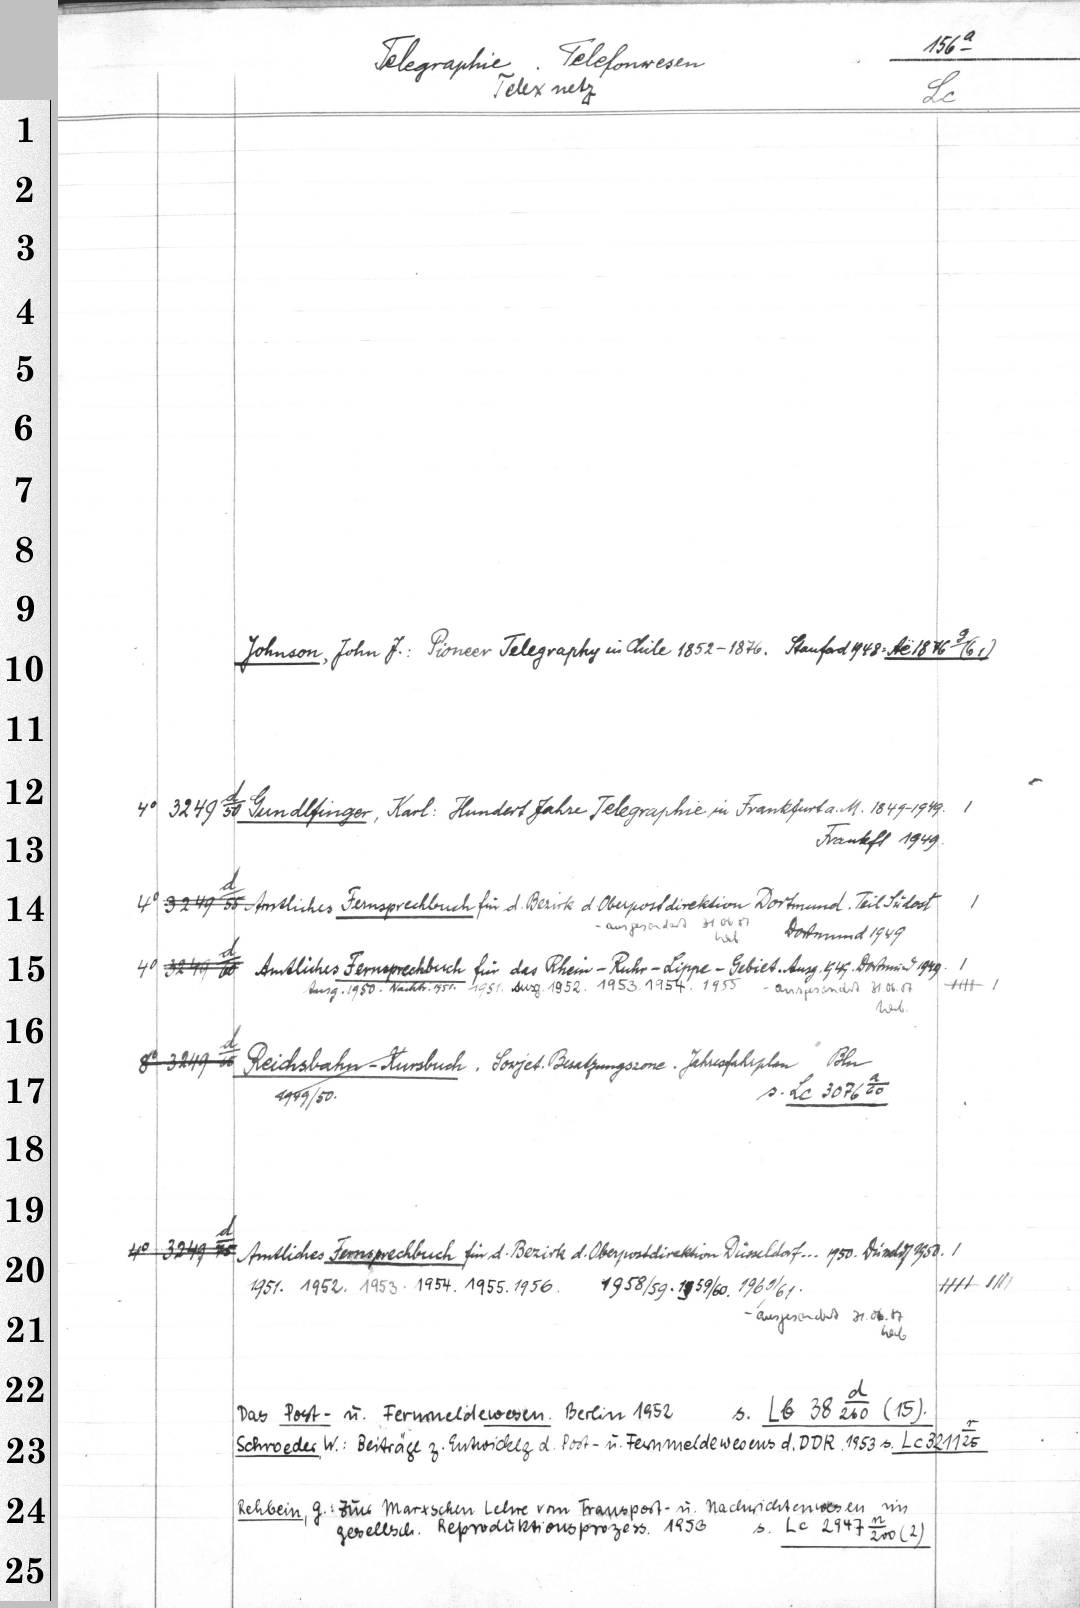 156a
Telegraphie. Telefonwesen
Telexnetz
Lc
1
2
3
4
5
6
7
8
9
10
11
12
13
14
15
16
17
18
19
20
21
22
23
24
25
Johnson, John J.: Pioneer Telegraphy in Chile 1852-1876. Stanford 1948 = Ae 1876 g/(6,1)
4° 3249 d/50 Gundlfinger, Karl: Hundert Jahre Telegraphie in Frankfurt a. M. 1849-1949. 1
Frankft 1949.
4° 3249 d/55 Amtliches Fernsprechbuch für d. Bezirk d Oberpostdirektion Dortmund. Teil Südost 1
- ausgesondert 21.06.07 Dortmund 1949
4° 3249 d/60 Amtliches Fernsprechbuch für das Rhein-Ruhr-Lippe-Gebiet. Ausg. 1949. Dortmund 1949. 1
Ausg. 1950. Nachtr. 1951. 1951. Ausg. 1952. 1953. 1954. 1955 - ausgesondert 21.06.07 |||| 1
8° 3249 d/65 Reichsbahn-Kursbuch. Sowjet. Besatzungszone. Jahresfahrplan Bln
1949/50. s. Lc 3076 a/60
4° 3249 d/75 Amtliches Fernsprechbuch für d. Bezirk d. Oberpostdirektion Düsseldorf... 1950. Düssdf 1950. 1
1951. 1952. 1953. 1954. 1955. 1956. 1958/59. 1959/60. 1960/61. |||| ||||
- ausgesondert 21.06.07
Das Post- u. Fernmeldewesen. Berlin 1952 s. Lb 38 d/260 (15).
Schroeder, W.: Beiträge z. Entwicklg d. Post- u. Fernmeldewesens d. DDR. 1953 s. Lc 3211 r/25
Rehbein, G.: Zur Marxschen Lehre vom Transport- u. Nachrichtenwesen im
gesellsch. Reproduktionsprozess. 1953 s. Lc 2947 n/200 (2)